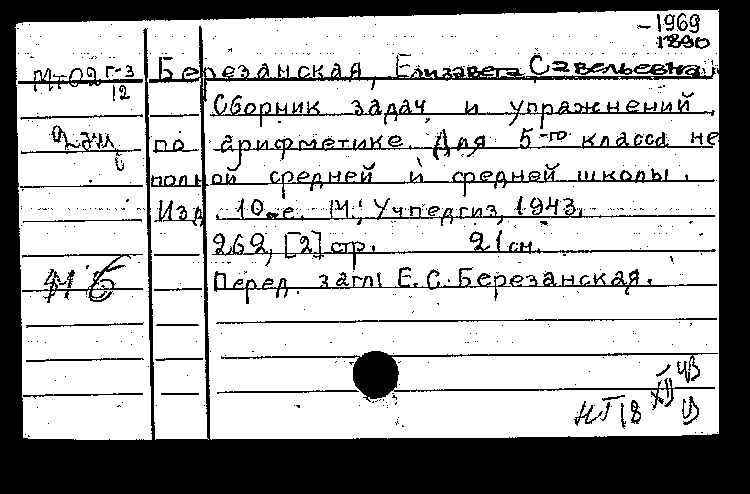 -1969
1890
М-02 Г-3 Березанская, Елизавета Савельевна
12
Сборник задач и упражнений
по арифметике. Для 5-го класса не
полной средней и средней школы.
Изд. 10-е. М., Учпедгиз, 1943.
262, [2] стр. 21 см.
Перед загл: Е. С. Березанская.
М Б
XII 43
НГ 18